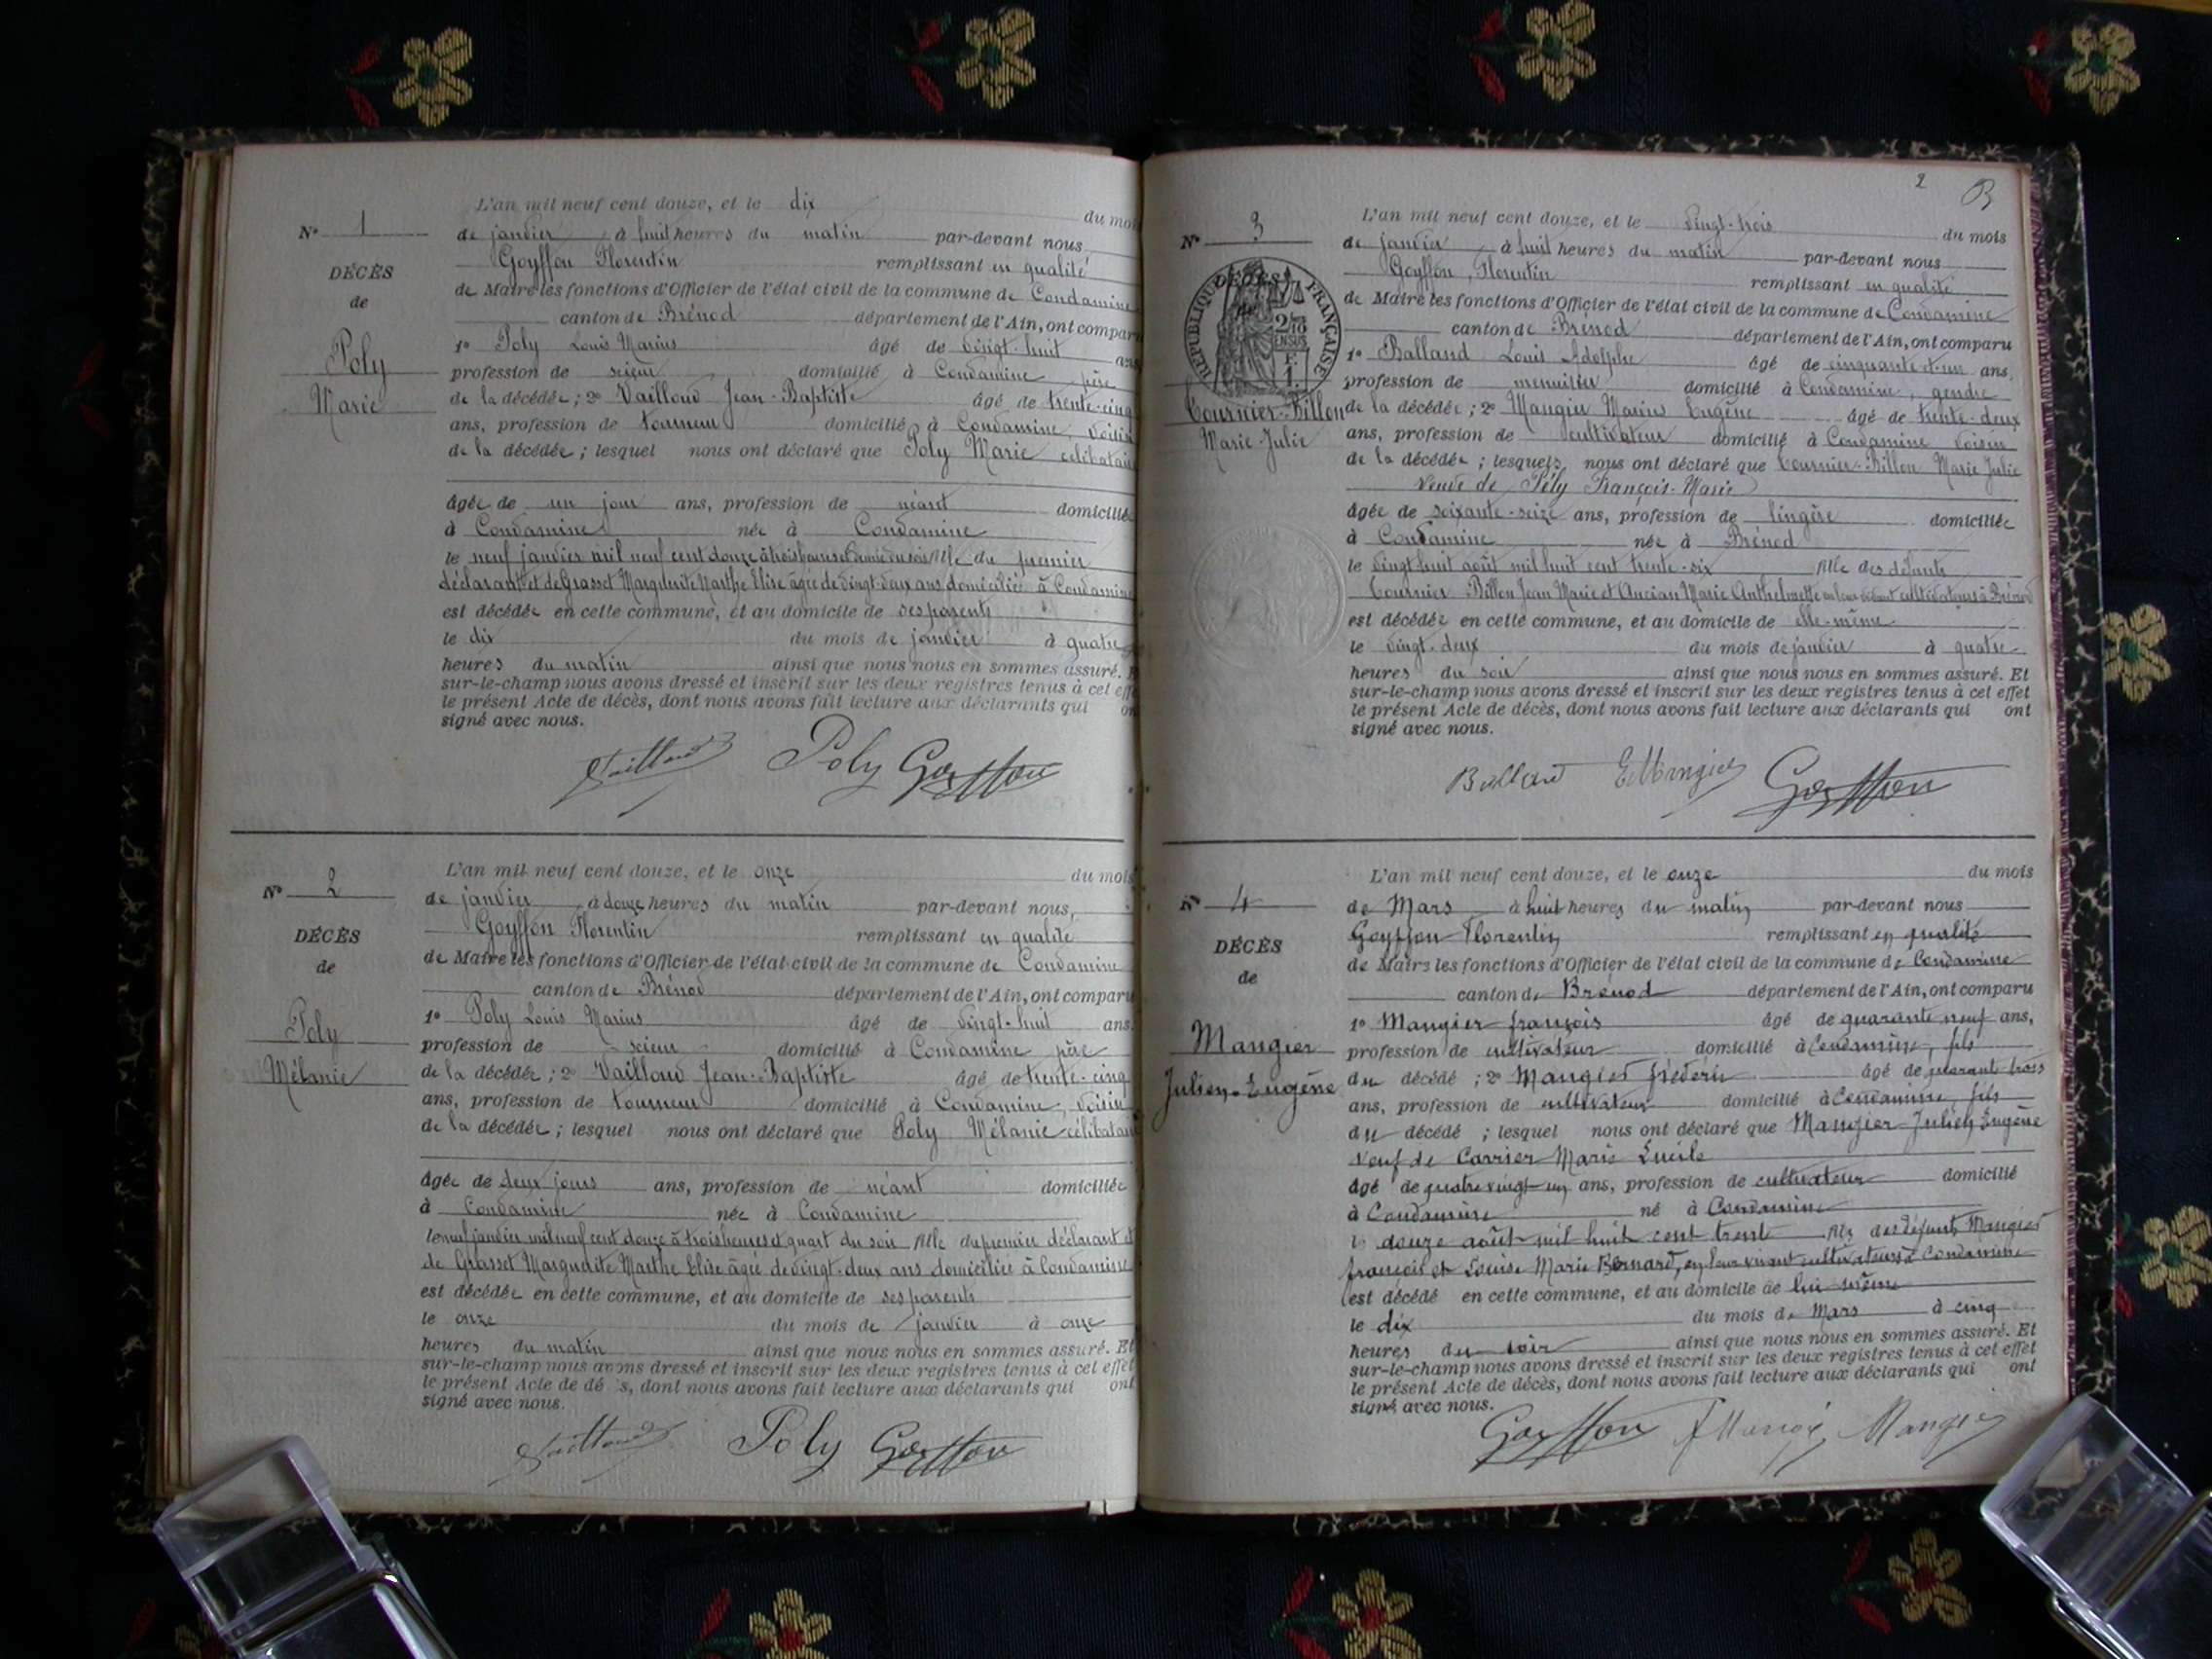 N° 1
DÉCÈS
de
Poly
Marie
L'an mil neuf cent douze, et le dix du mois
de janvier, à huit heures du matin par-devant nous
Goyffon Florentin remplissant en qualité
de Maire les fonctions d'Officier de l'état civil de la commune de Condamine
canton de Brénod département de l'Ain, ont comparu
1° Poly Louis Marius âgé de vingt-huit ans
profession de scieur domicilié à Condamine père
de la décédée ; 2° Vailloud Jean-Baptiste âgé de trente-cinq
ans, profession de tourneur domicilié à Condamine, voisin
de la décédée ; lesquel nous ont déclaré que Poly Marie célibataire
âgée de un jour ans, profession de néant domiciliée
à Condamine née à Condamine
le neuf janvier mil neuf cent douze à trois heures du soir fille du premier
déclarant et de Grasset Marguerite Marthe Elise âgée de vingt-deux ans domiciliée à Condamine
est décédée en cette commune, et au domicile de ses parents
le dix du mois de janvier à quatre
heures du matin ainsi que nous nous en sommes assuré. Et
sur-le-champ nous avons dressé et inscrit sur les deux registres tenus à cet effet
le présent Acte de décès, dont nous avons fait lecture aux déclarants qui ont
signé avec nous.
Vailloud Poly Goyffon
N° 2
DÉCÈS
de
Poly
Mélanie
L'an mil neuf cent douze, et le onze du mois
de janvier, à douze heures du matin par-devant nous,
Goyffon Florentin remplissant en qualité
de Maire les fonctions d'Officier de l'état civil de la commune de Condamine
canton de Brénod département de l'Ain, ont comparu
1° Poly Louis Marius âgé de vingt-huit ans
profession de scieur domicilié à Condamine père
de la décédée ; 2° Vailloud Jean-Baptiste âgé de trente-cinq
ans, profession de tourneur domicilié à Condamine, voisin
de la décédée ; lesquel nous ont déclaré que Poly Mélanie célibataire
âgée de deux jours ans, profession de néant domiciliée
à Condamine née à Condamine
le neuf janvier mil neuf cent douze à trois heures et quart du soir fille du premier déclarant et
de Grasset Marguerite Marthe Elise âgée de vingt-deux ans domiciliée à Condamine
est décédée en cette commune, et au domicile de ses parents
le onze du mois de janvier à onze
heures du matin ainsi que nous nous en sommes assuré. Et
sur-le-champ nous avons dressé et inscrit sur les deux registres tenus à cet effet
le présent Acte de dé s, dont nous avons fait lecture aux déclarants qui ont
signé avec nous.
Vailloud Poly Goyffon
2
N° 3
DÉCÈS
RÉPUBLIQUE FRANÇAISE
2/10
EN SUS
Tournier-Billon
Marie-Julie
L'an mil neuf cent douze, et le vingt-trois du mois
de janvier, à huit heures du matin par-devant nous
Goyffon, Florentin remplissant en qualité
de Maire les fonctions d'Officier de l'état civil de la commune de Condamine
canton de Brénod département de l'Ain, ont comparu
1° Balland Louis Adolphe âgé de cinquante et un ans,
profession de menuisier domicilié à Condamine, gendre
de la décédée ; 2° Mangier Marius Eugène âgé de trente-deux
ans, profession de cultivateur domicilié à Condamine voisin
de la décédée ; lesquels nous ont déclaré que Tournier-Billon Marie Julie
veuve de Pély François-Marie
âgée de soixante-seize ans, profession de lingère domiciliée
à Condamine née à Brénod
le vingt-huit août mil huit cent trente-six fille des défunts
Tournier-Billon Jean Marie et Ancian Marie Anthelmette en leur vivant cultivateurs à Brénod
est décédée en cette commune, et au domicile de elle-même
le vingt-deux du mois de janvier à quatre
heures du soir ainsi que nous nous en sommes assuré. Et
sur-le-champ nous avons dressé et inscrit sur les deux registres tenus à cet effet
le présent Acte de décès, dont nous avons fait lecture aux déclarants qui ont
signé avec nous.
Balland E Mangier Goyffon
N° 4
DÉCÈS
de
Mangier
Julien-Eugène
L'an mil neuf cent douze, et le onze du mois
de Mars à huit heures du matin par-devant nous
Goyffon Florentin remplissant en qualité
de Maire les fonctions d'Officier de l'état civil de la commune de Condamine
canton de Brenod département de l'Ain, ont comparu
1° Mangier françois âgé de quarante neuf ans,
profession de cultivateur domicilié à Condamine, fils
du décédé ; 2° Mangier fréderic âgé de quarant trois
ans, profession de cultivateur domicilié à Condamine, fils
du décédé ; lesquel nous ont déclaré que Mangier Julien Eugène
veuf de Carrier Marie Lucile
âgé de quatre vingt un ans, profession de cultivateur domicilié
à Condamine né à Condamine
le douze août mil huit cent trent fils des défunts Mangier
françois et Louise Marie Bernard, en leur vivant cultivateurs à Condamine
est décédé en cette commune, et au domicile de lui même
le dix du mois de Mars à cinq
heures du soir ainsi que nous nous en sommes assuré. Et
sur-le-champ nous avons dressé et inscrit sur les deux registres tenus à cet effet
le présent Acte de décès, dont nous avons fait lecture aux déclarants qui ont
signé avec nous.
Goyffon F Mangier Mangier